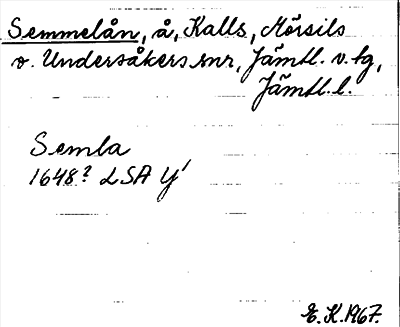 Semmelån, å, Kalls, Mörsils
o. Undersåkers snr, Jämtl. v. tg,
Jämtl. l.
Semla
1648? LSA Y¹
E. K. 1967.